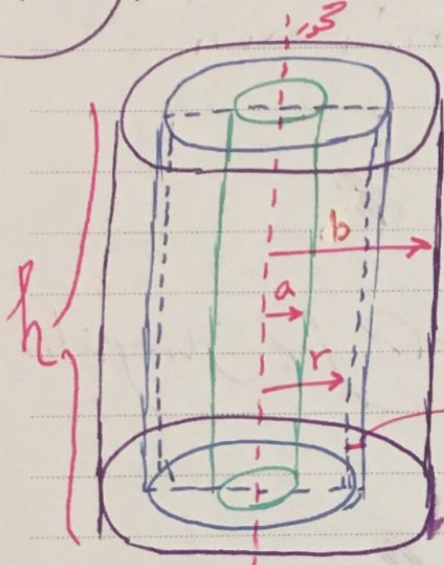 z
b
a
r
h